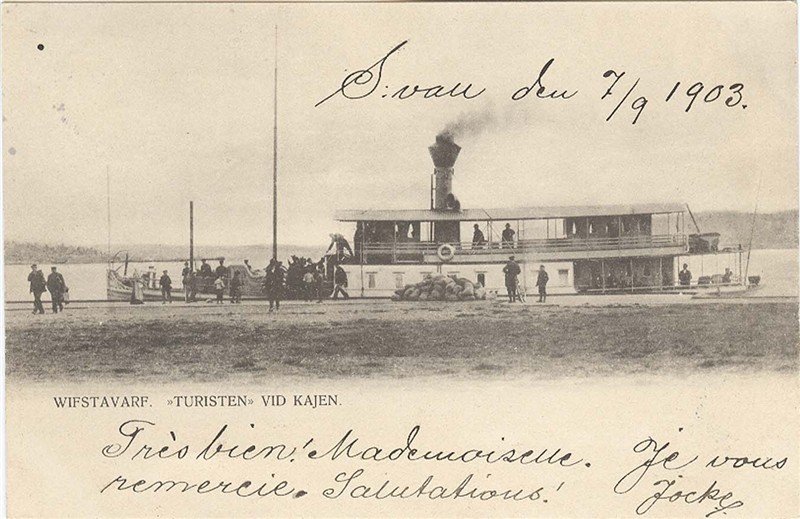 S:vall den 7/9 1903.
WIFSTAVARF. »TURISTEN» VID KAJEN.
Très bien! Mademoiselle. Je vous
remercie. Salutations! Jocke